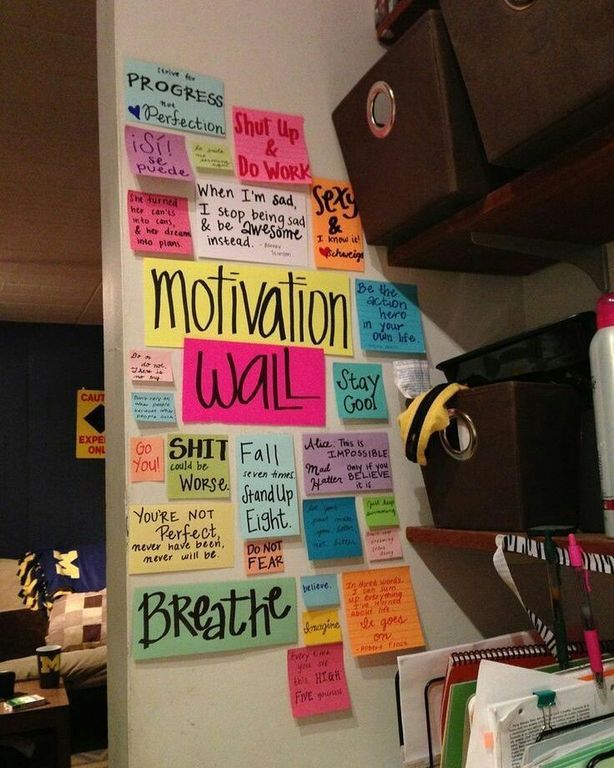 Strive for
PROGRESS
not
Perfection
¡Sí!
se
puede
Shut Up
&
Do WORK
She turned
her can'ts
into cans,
& her dreams
into plans.
When I'm sad,
I stop being sad
& be awesome
instead.
Sexy
&
I know it!
motivation
Wall
Be the
action
hero
in your
own life.
Do or
do not.
There is
no try.
Stay
Cool
CAUT
EXPE
ONL
Go
You!
SHIT
could be
Worse.
Fall
seven times.
Stand Up
Eight.
Alice: This is
IMPOSSIBLE
Mad Hatter
only if you
BELIEVE
it is
YOU'RE NOT
Perfect,
never have been,
never will be.
DO NOT
FEAR
Let your
past make
you better
not bitter.
Just keep
swimming
Breathe
believe.
Imagine
In three words,
I can sum
up everything
I've learned
about life
It goes
on
- Robert Frost
Every time
you see
this, HIGH
FIVE yourself
M
M